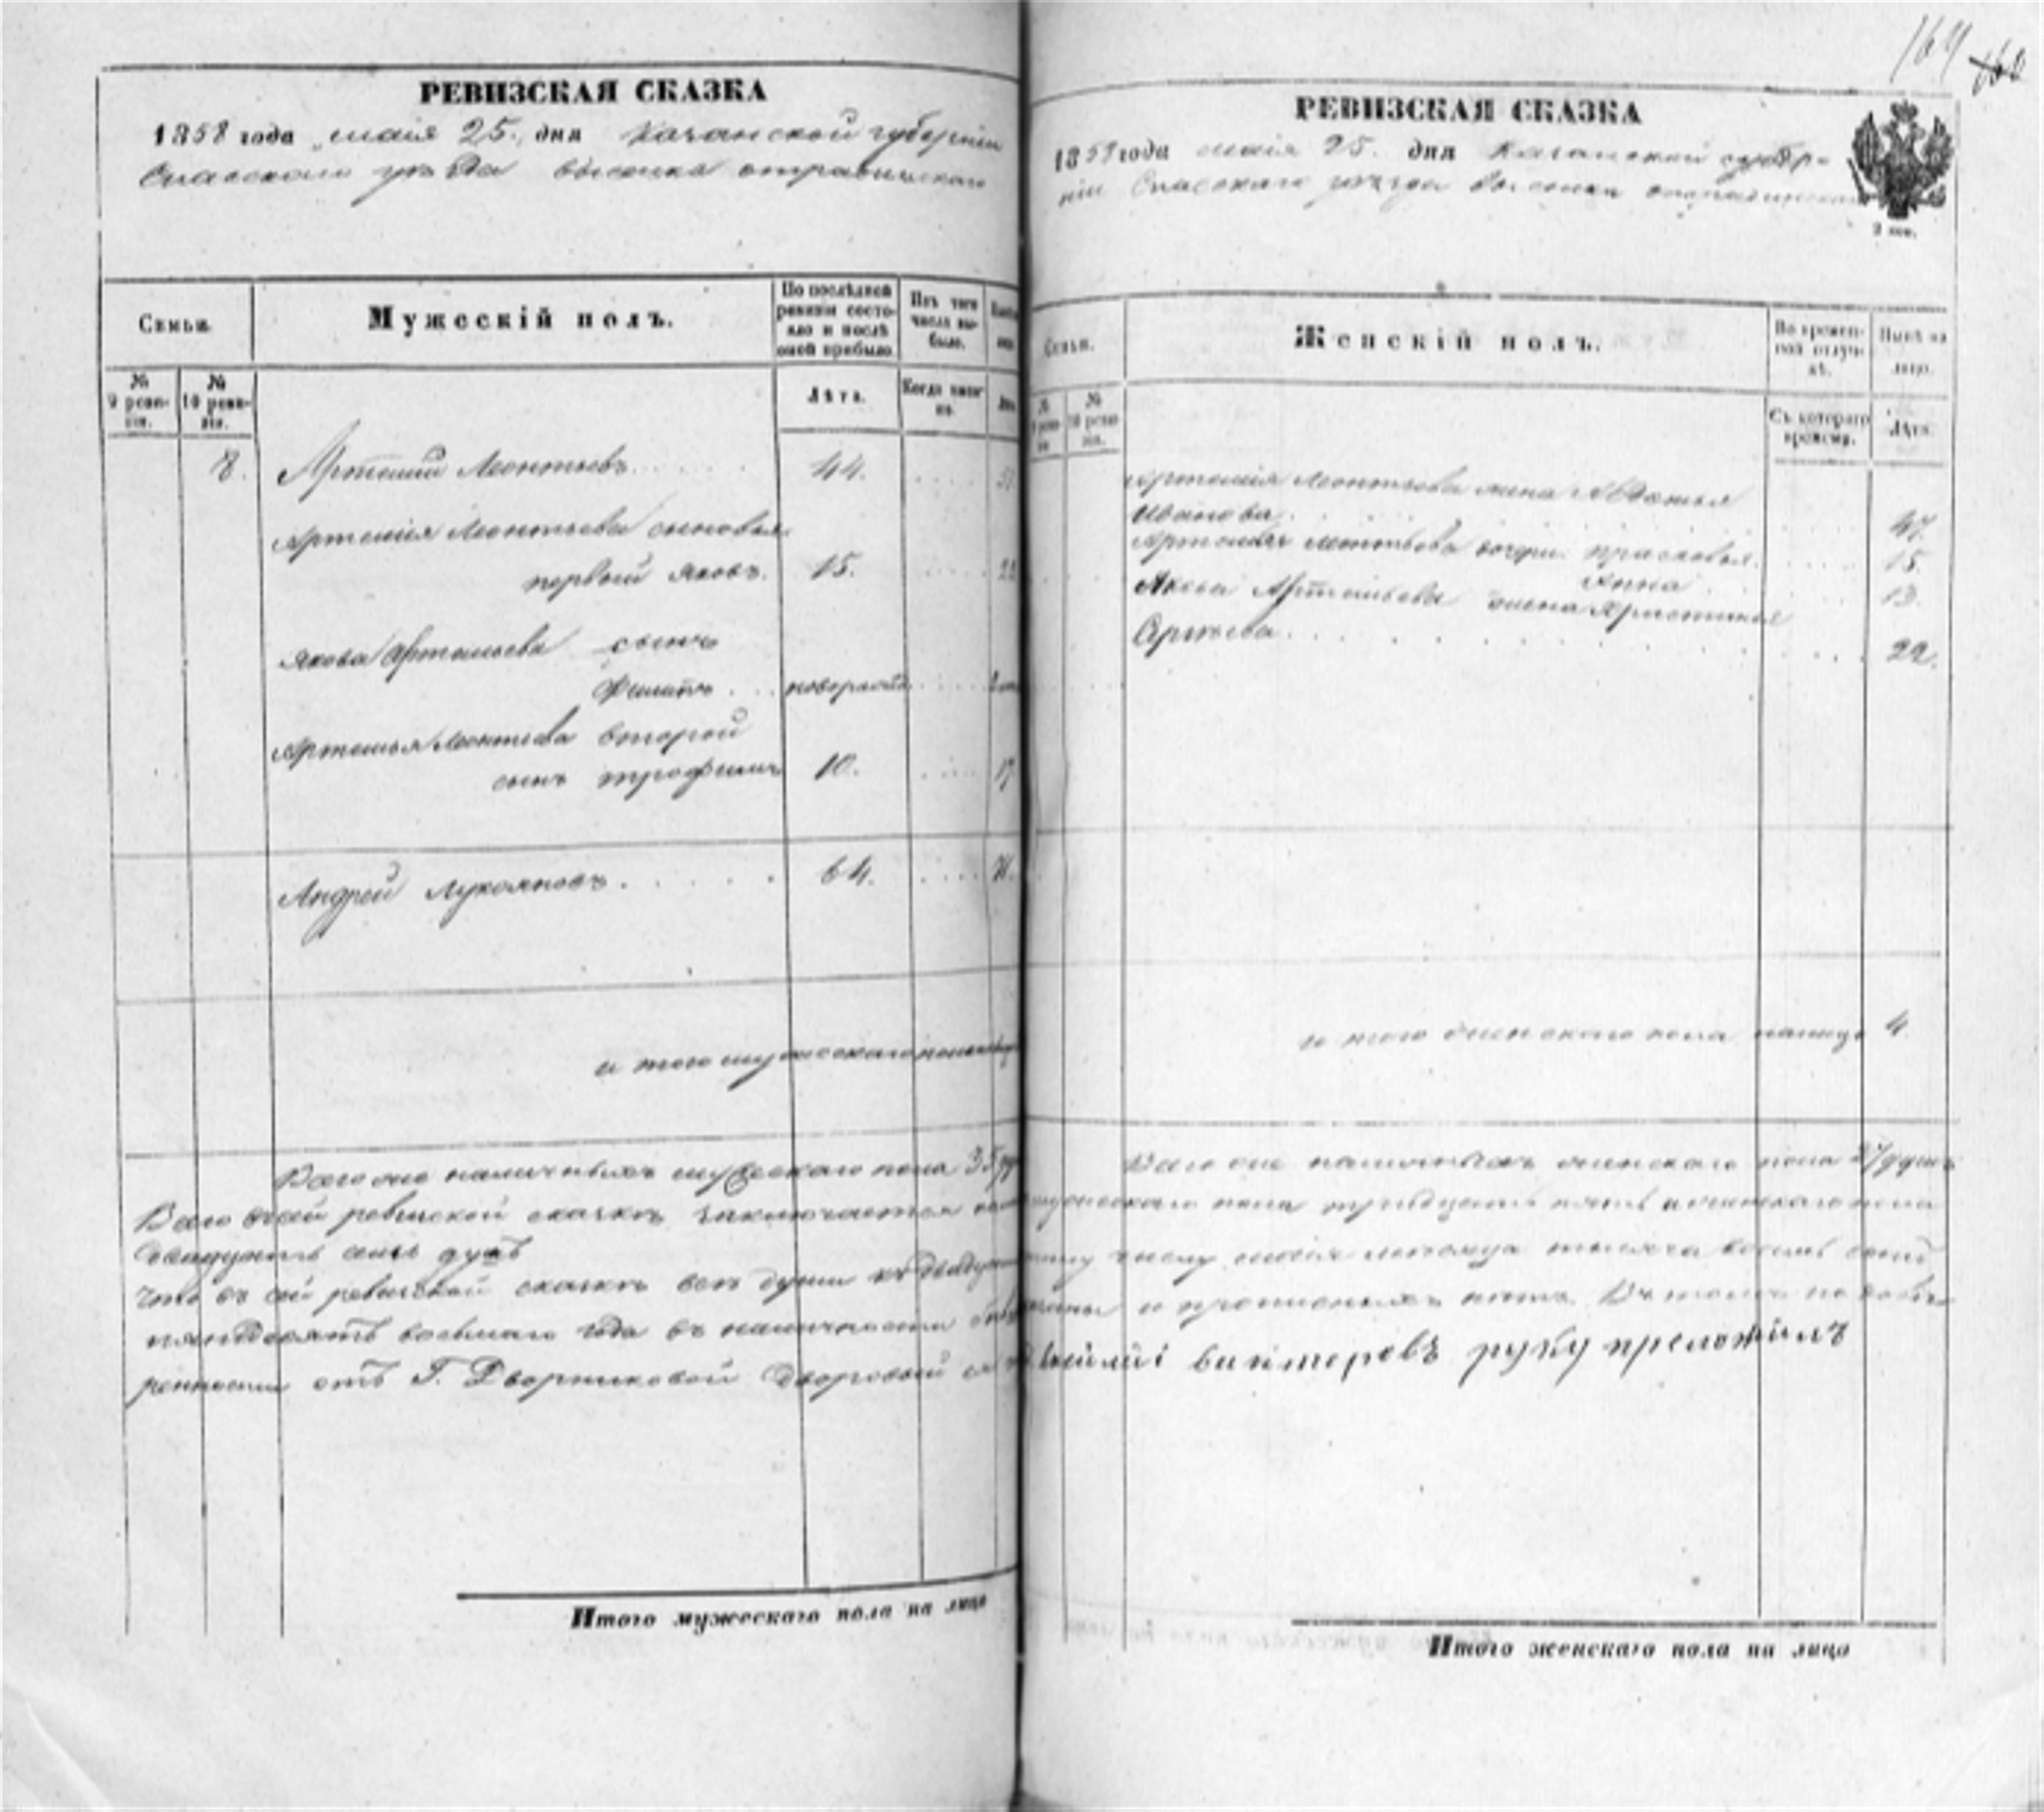 164
РЕВИЗСКАЯ СКАЗКА
1858 года маія 25. дня Казанской губерніи
Спаскаго уѣзда выселка
Семьи.
Мужескій полъ.
По послѣдней ревизіи состояло и послѣ оной прибыло.
Изъ того числа выбыло.
№ 9 ревизіи.
№ 10 ревизіи.
Лѣта.
Когда именно.
8. Артемий Леонтьевъ 44.
Артемия Леонтьева сыновья
первый Яковъ. 15. 22
Якова Артемьева сынъ
Филипъ новорожд.
Артемья Леонтьева второй
сынъ трофимъ 10. 17
Андрей Лукояновъ 64. 71.
и того мужескаго пола
Всего оне наличныхъ мужескаго пола 35
Всего въ сей ревиской сказкѣ заключается
двадцать семь душъ
Что въ сей ревиской сказкѣ всѣ души къ двадцать
пятдесятъ восьмаго года въ наличности
ренности отъ Г. Дворниковой дворовый
Итого мужескаго пола на лицо
РЕВИЗСКАЯ СКАЗКА
1858 года маія 25. дня Казанской губер-
ніи Спаскаго уѣзда выселка
2 коп.
Семьи.
Женскій полъ.
Во временной отлучкѣ.
Нынѣ на лицо.
№ 9 ревизіи
№ 10 ревизіи.
Съ котораго времени.
Лѣта.
Артемія Леонтьева жена Авдотья
Иванова. 47.
Артемия Леонтьева дочери Прасковья. 15.
Анна 13.
Якова Артемьева жена Христинья
Сергѣева. 22.
и того женскаго пола налицо 4
Всего оне наличныхъ женскаго пола 27 душъ
мужескаго пола тридцать пять и женскаго пола
числу маія месяца тысяча восемь сотъ
и прописныхъ нѣтъ. Въ томъ по довѣ-
руку преложилъ
Итого женскаго пола на лицо